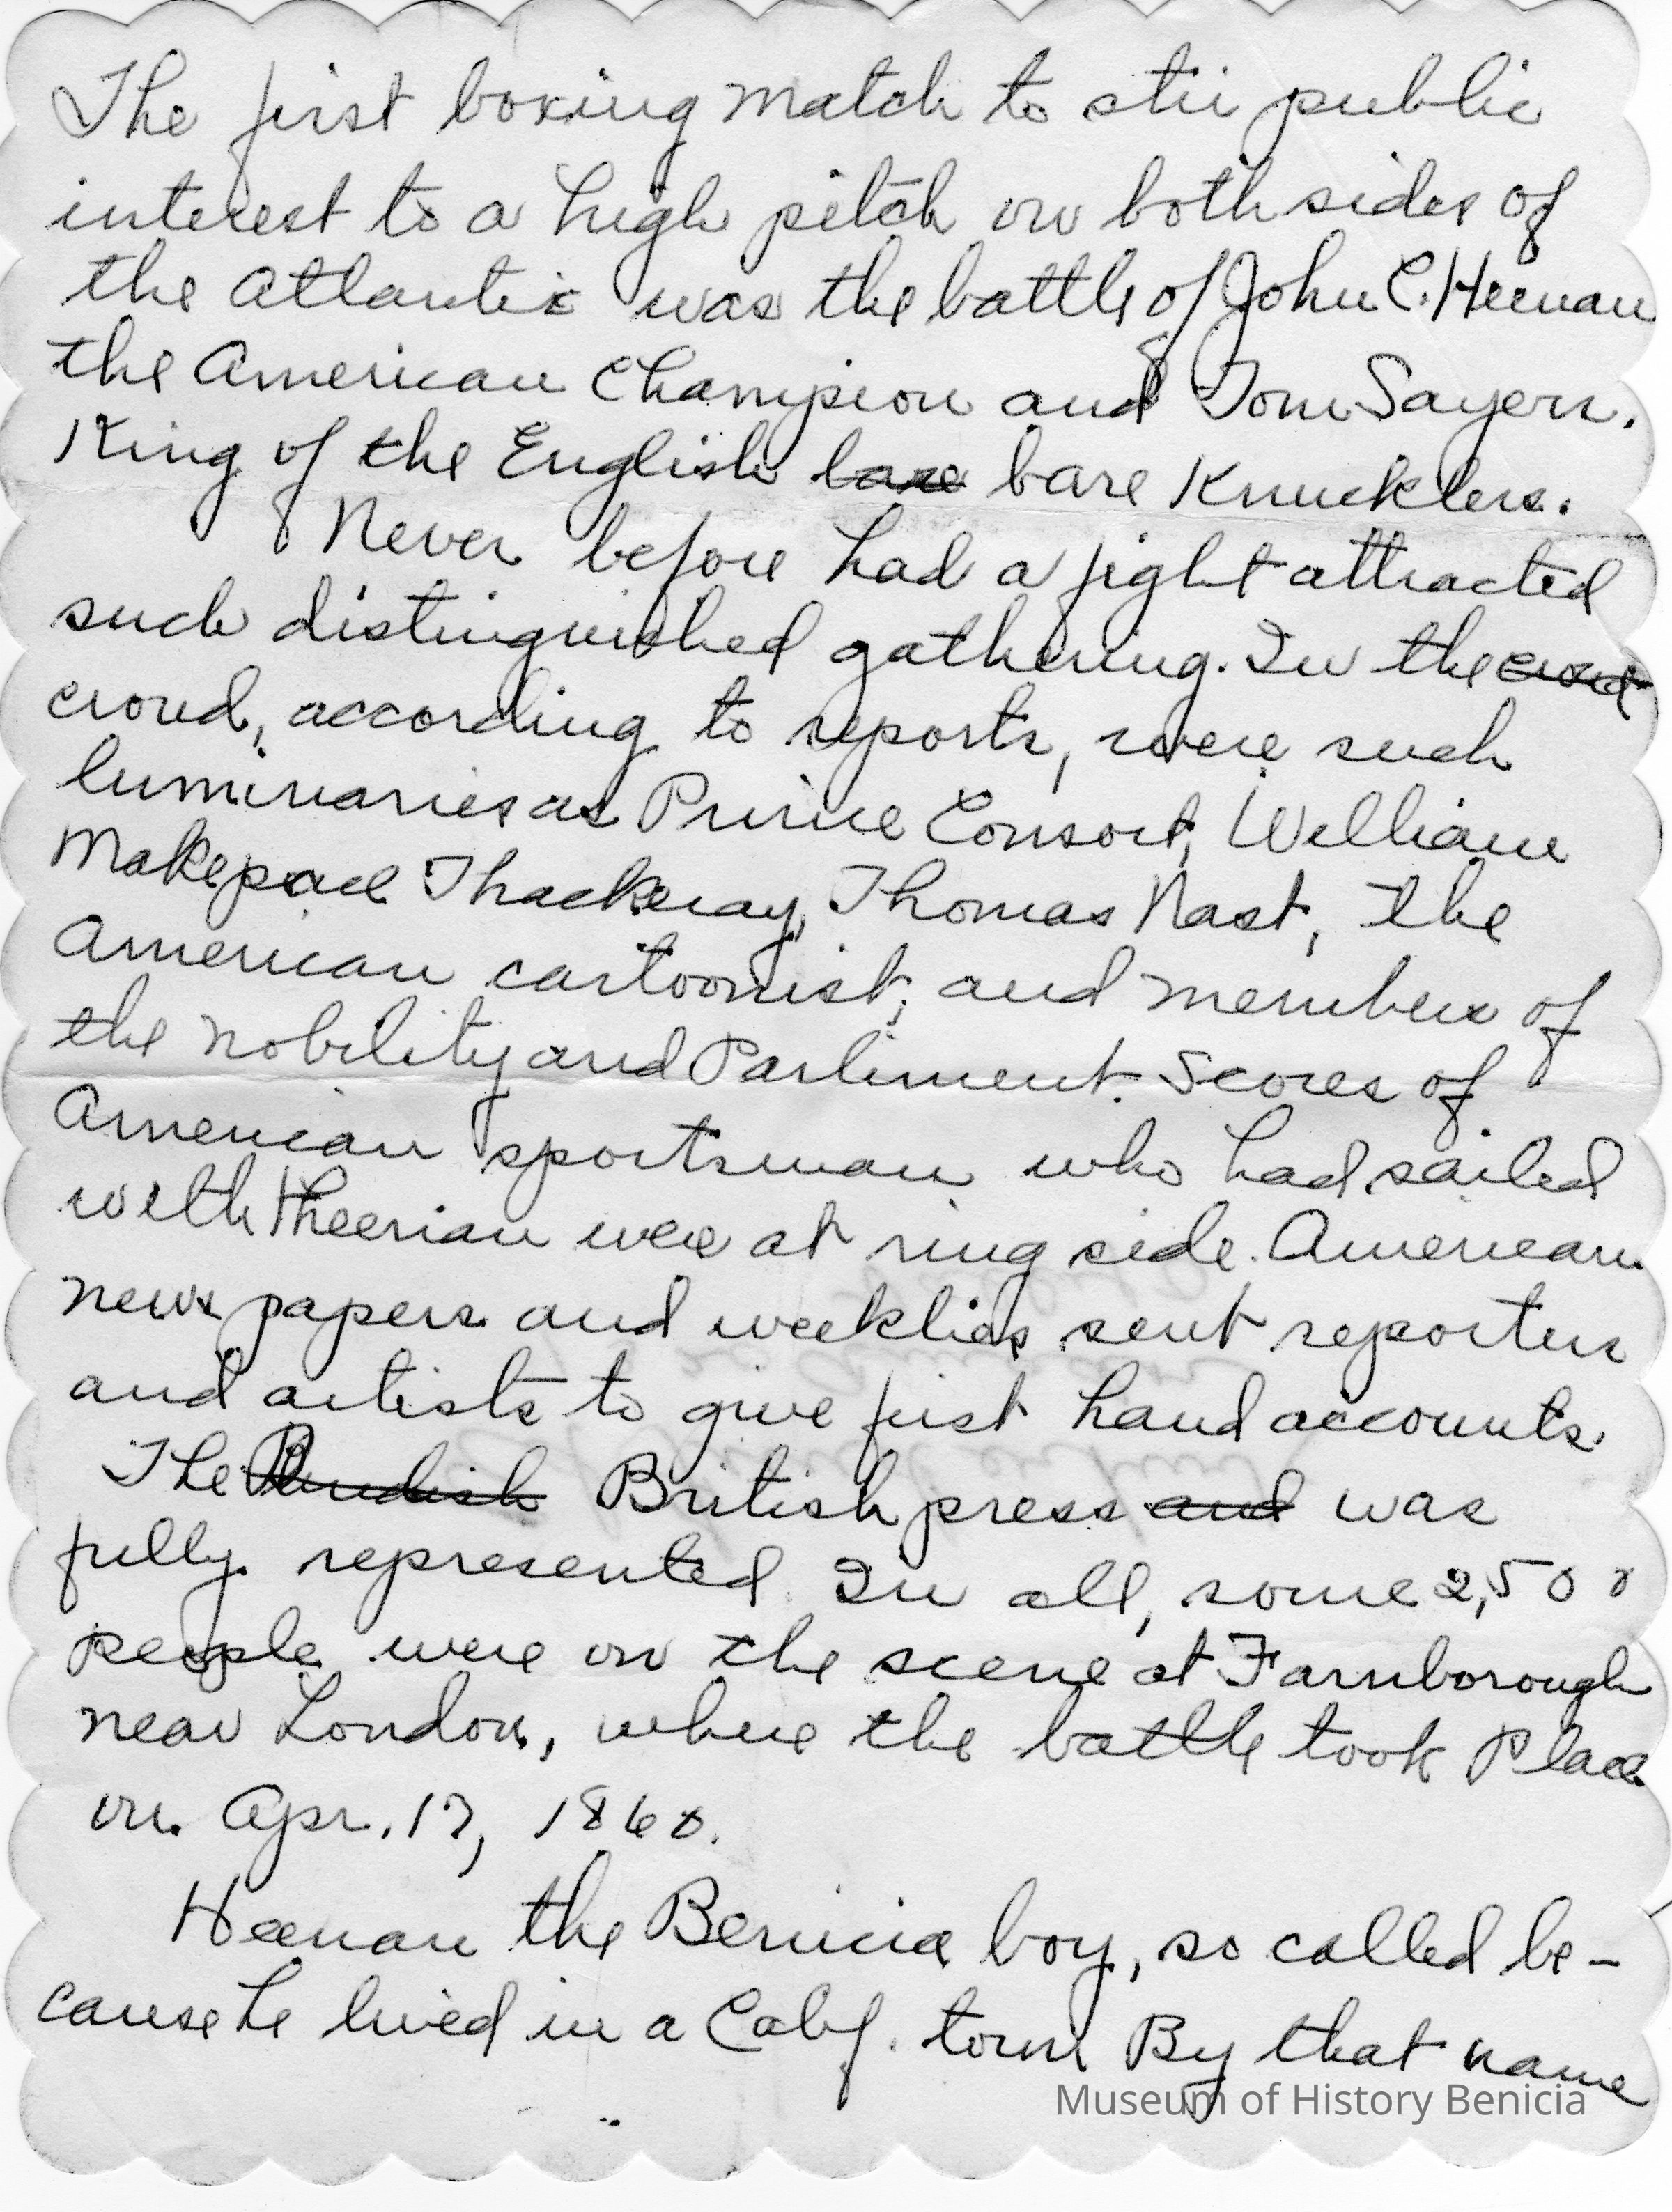 The first boxing match to stir public
interest to a high pitch on both sides of
the Atlantic was the battle of John C. Heenan
the American Champion and Tom Sayers.
King of the English bare bare Knucklers.
Never before had a fight attracted
such distinguished gathering. In the crowd
crowd, according to reports, were such
luminaries as Prince Consort, William
Makepeace Thackeray, Thomas Nast, the
American cartoonist, and members of
the nobility and Parliment. Scores of
American sportsman who had sailed
with Heenan were at ring side. American
news papers and weeklies sent reporters
and artists to give first hand accounts.
The British press and was
fully represented. In all, some 2,500
people were on the scene at Farnborough
near London, where the battle took place
on Apr. 17, 1860.
Heenan the Benicia boy, so called be-
cause he lived in a Calif. town By that name
Museum of History Benicia